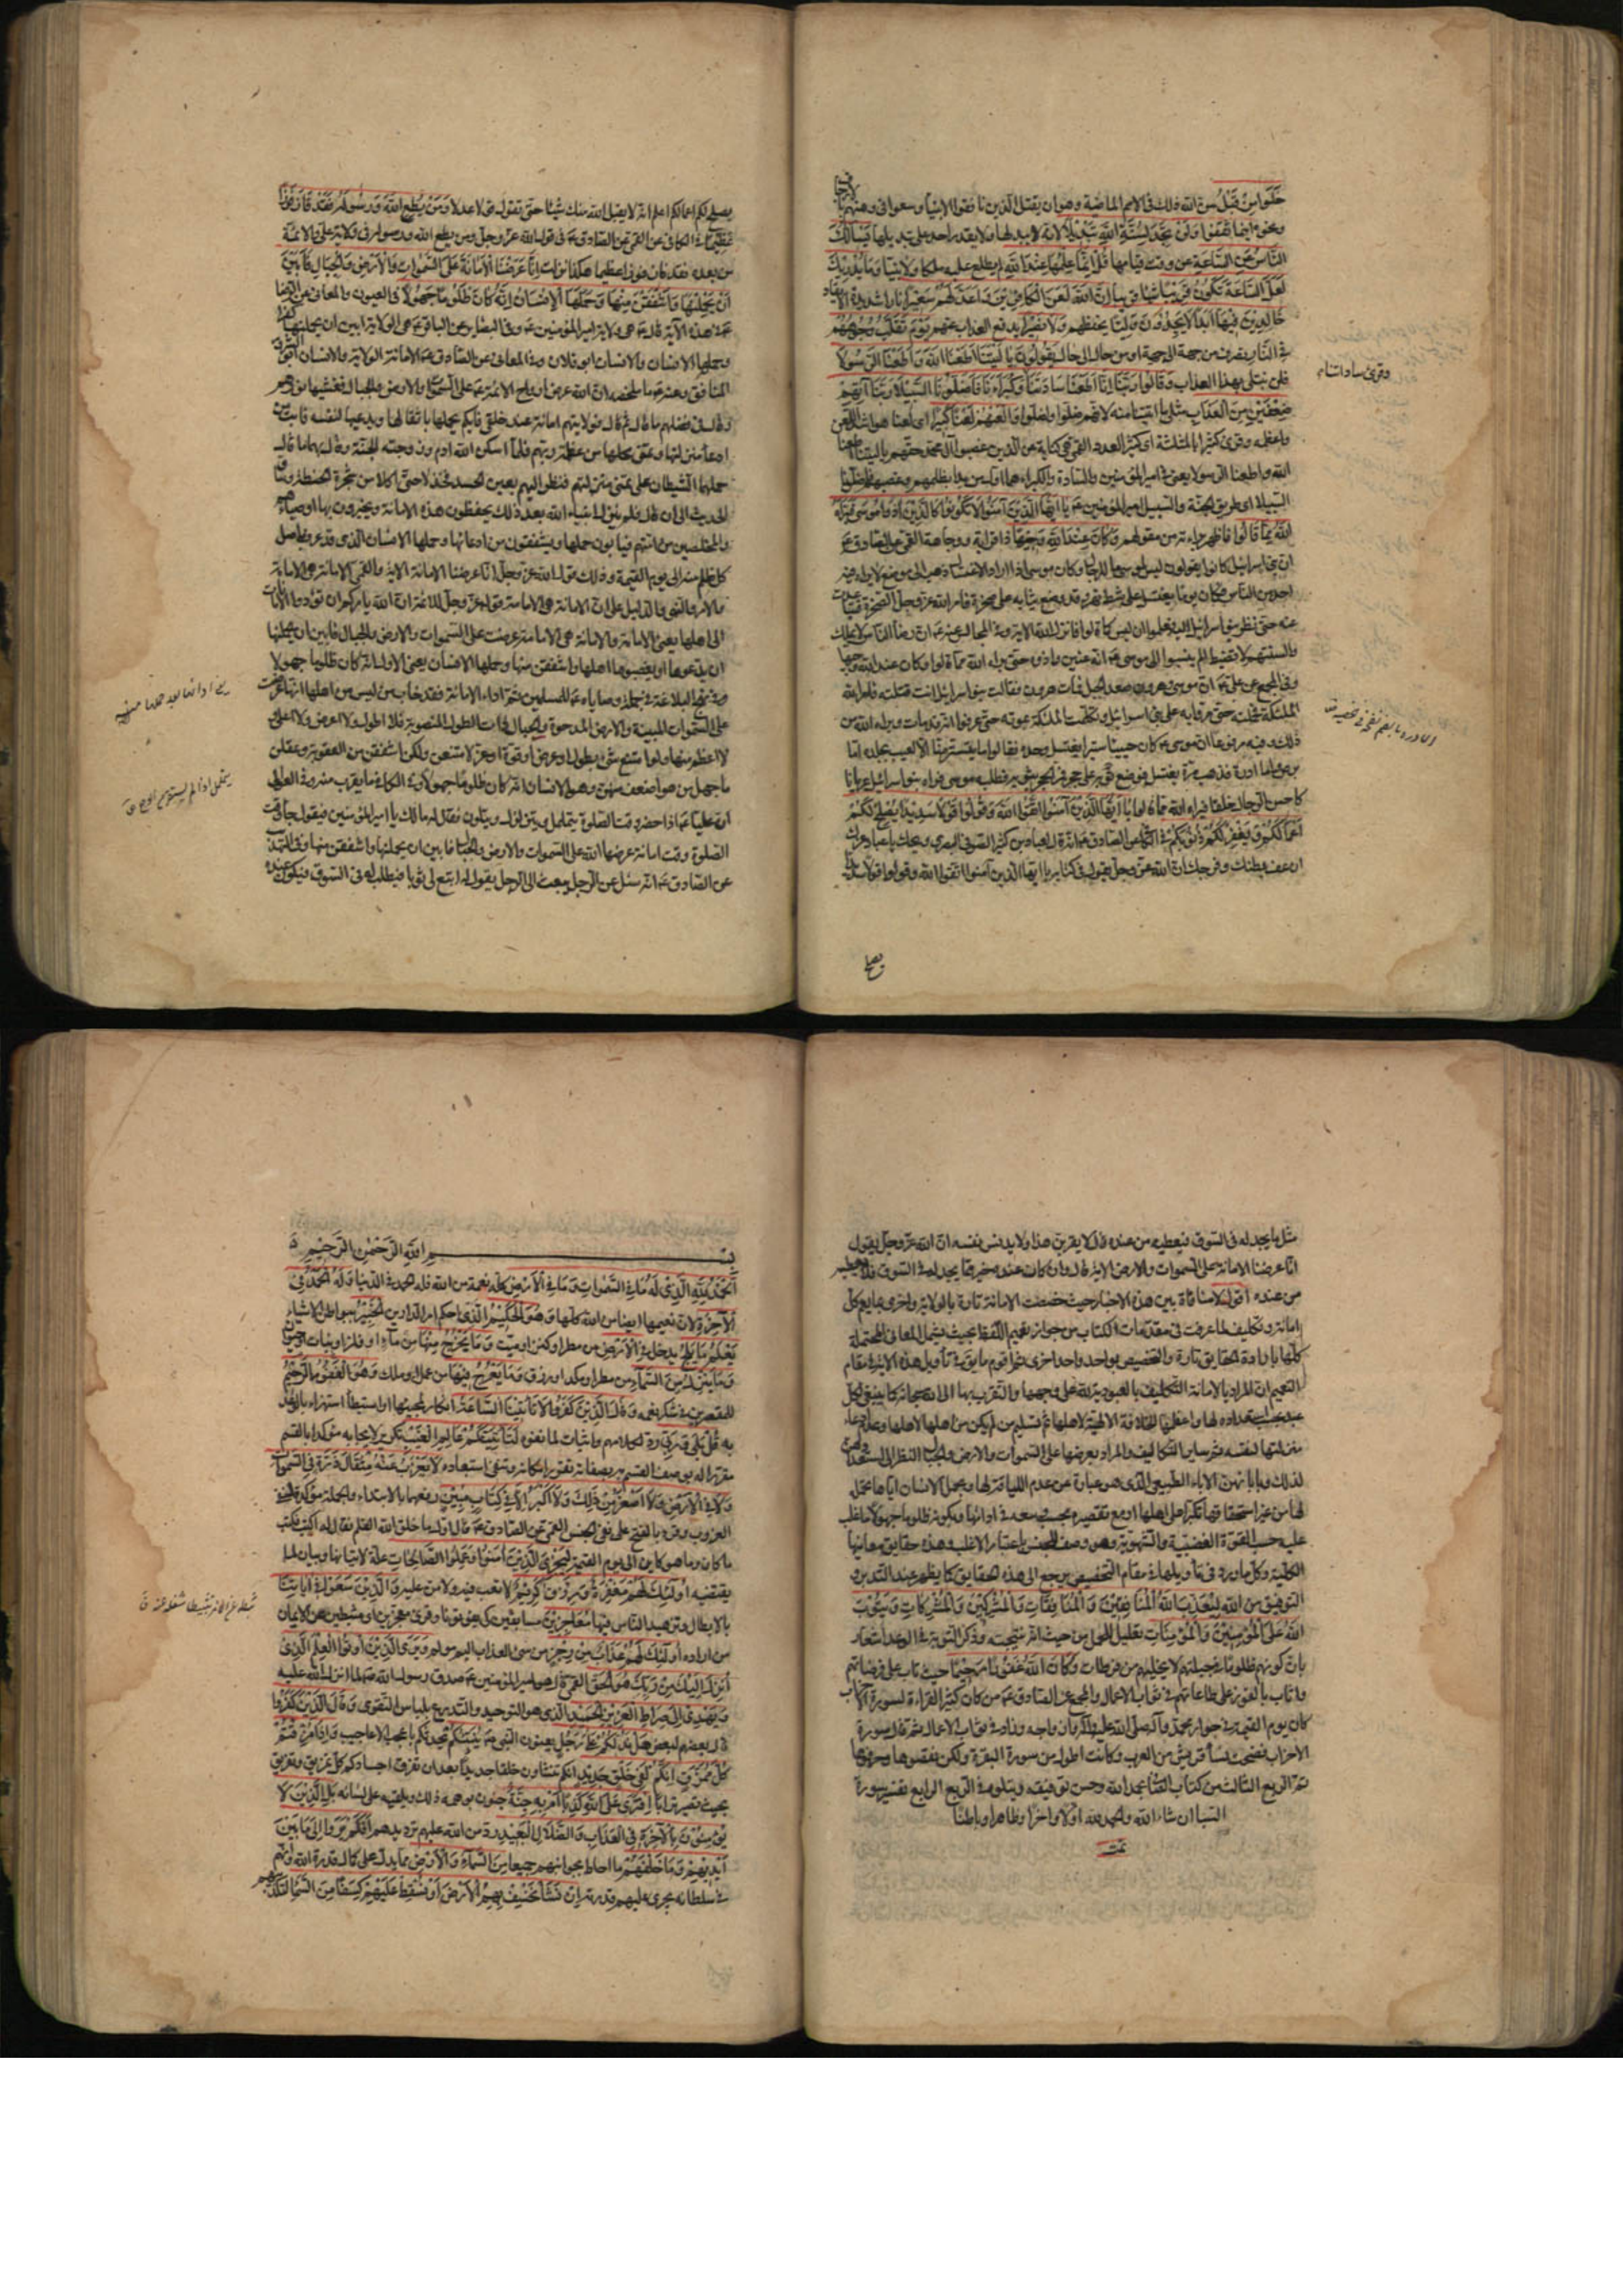 خَلَوْا مِنْ قَبْلُ سن الله ذلك فى الامم الماضية وهو ان يقتل الذين نافقوا الانبياء وسعوا فى وهنهم بالارجاف
ونحوه اينما ثقفوا وَلَنْ تَجِدَ لِسُنَّةِ اللَّهِ تَبْدِيلًا لانه لا يبدلها ولا يقدر احد على تبديلها يَسْأَلُكَ
النَّاسُ عَنِ السَّاعَةِ عن وقت قيامها قُلْ إِنَّمَا عِلْمُهَا عِنْدَ اللَّهِ لم يطلع عليه ملكا ولا نبيا وَمَا يُدْرِيكَ
لَعَلَّ السَّاعَةَ تَكُونُ قَرِيبًا إِنَّ اللَّهَ لَعَنَ الْكَافِرِينَ وَأَعَدَّ لَهُمْ سَعِيرًا نارا شديدة الاتقاد
خَالِدِينَ فِيهَا أَبَدًا لَا يَجِدُونَ وَلِيًّا يحفظهم وَلَا نَصِيرًا يدفع العذاب عنهم يَوْمَ تُقَلَّبُ وُجُوهُهُمْ
فِي النَّارِ يصرف من جهة الى جهة او من حال الى حال يَقُولُونَ يَا لَيْتَنَا أَطَعْنَا اللَّهَ وَأَطَعْنَا الرَّسُولَا
فلن نبتلى بهذا العذاب وَقَالُوا رَبَّنَا إِنَّا أَطَعْنَا سَادَتَنَا وَكُبَرَاءَنَا فَأَضَلُّونَا السَّبِيلَا رَبَّنَا آتِهِمْ
ضِعْفَيْنِ مِنَ الْعَذَابِ مثلى ما اتيتنا منه لانهم ضلوا واضلوا وَالْعَنْهُمْ لَعْنًا كَبِيرًا اى لعنا هو اشد اللعن
واعظمه وقرئ كثيرا بالمثلثة اى كثير العدد القمى هى كناية عن الذين غصبوا آل محمد حقهم يا ليتنا اطعنا
الله واطعنا الرسولا يعنى فى امير المؤمنين والسادة والكبراء هما اول من بدا بظلمهم وغصبهم فاضلونا
السبيلا اى طريق الجنة والسبيل امير المؤمنين ع يَا أَيُّهَا الَّذِينَ آمَنُوا لَا تَكُونُوا كَالَّذِينَ آذَوْا مُوسَى فَبَرَّأَهُ
اللَّهُ مِمَّا قَالُوا فاظهر براءته من مقولهم وَكَانَ عِنْدَ اللَّهِ وَجِيهًا ذا قرابة ووجاهة القمى عن الصادق ع
ان بنى اسرائيل كانوا يقولون ليس لموسى ما للرجال وكان موسى اذا اراد الاغتسال ذهب الى موضع لا يراه فيه
احد من الناس فكان يوما يغتسل على شط نهر وقد وضع ثيابه على صخرة فامر الله عز وجل الصخرة فتباعدت
عنه حتى نظر بنو اسرائيل اليه فعلموا ان ليس كما قالوا فانزل الله الاية وفى المجالس عنه ع ان رضا الناس لا يملك
والسنتهم لا تضبط الم ينسبوا الى موسى ع انه عنين واذوه حتى براه الله مما قالوا وكان عند الله وجيها
وفى المجمع عن على ع ان موسى وهرون صعدا الجبل فمات هرون فقالت بنو اسرائيل انت قتلته فامر الله
الملئكة فحملته حتى مروا به على بنى اسرائيل وتكلمت الملئكة بموته حتى عرفوا انه قد مات وبراه الله من
ذلك وفيه مرفوعا ان موسى ع كان حييا ستيرا يغتسل وحده فقالوا ما يتستر منا الا لعيب بجلده اما
برص واما ادرة فذهب مرة يغتسل فوضع ثوبه على حجر فمر الحجر بثوبه فطلبه موسى فراه بنو اسرائيل عريانا
كاحسن الرجال خلقا فبراه الله مما قالوا يَا أَيُّهَا الَّذِينَ آمَنُوا اتَّقُوا اللَّهَ وَقُولُوا قَوْلًا سَدِيدًا يُصْلِحْ لَكُمْ
أَعْمَالَكُمْ وَيَغْفِرْ لَكُمْ ذُنُوبَكُمْ فى الكافى عن الصادق ع انه قال لعباد بن كثير الصوفى البصرى ويحك يا عباد غرك
ان عف بطنك وفرجك ان الله عز وجل يقول فى كتابه يا ايها الذين آمنوا اتقوا الله وقولوا قولا سديدا
وقرئ ساداتنا
يصلح
يصلح لكم اعمالكم اعلم انه لا يقبل الله منك شيئا حتى تقول قولا عدلا وَمَنْ يُطِعِ اللَّهَ وَرَسُولَهُ فَقَدْ فَازَ فَوْزًا
عَظِيمًا فى الكافى عن القمى عن الصادق ع فى قول الله عز وجل ومن يطع الله ورسوله فى ولاية على والائمة
من بعده فقد فاز فوزا عظيما هكذا نزلت إِنَّا عَرَضْنَا الْأَمَانَةَ عَلَى السَّمَوَاتِ وَالْأَرْضِ وَالْجِبَالِ فَأَبَيْنَ
أَنْ يَحْمِلْنَهَا وَأَشْفَقْنَ مِنْهَا وَحَمَلَهَا الْإِنْسَانُ إِنَّهُ كَانَ ظَلُومًا جَهُولًا فى العيون والمعانى عن الرضا
ع فى هذه الآية قال ع هى ولاية امير المؤمنين ع وفى البصاير عن الباقر ع هى الولاية ابين ان يحملنها كفرا
وحملها الانسان والانسان ابو فلان وفى المعانى عن الصادق ع الامانة الولاية والانسان ابو الشرور
المنافق وعنه ع ما ملخصه ان الله عرض ارواح الائمة ع على السموات والارض والجبال فغشيها نورهم
وقال فى فضلهم ما قال ثم قال فولايتهم امانة عند خلقى فايكم يحملها باثقالها ويدعيها لنفسه فابت من
ادعاء منزلتها وتمنى محلها من عظمة ربهم فلما اسكن الله ادم وزوجته الجنة وقال لهما ما قال
حملهما الشيطان على تمنى منزلتهم فنظرا اليهم بعين الحسد فخذلا حتى اكلا من شجرة الحنطة وساق
الحديث الى ان قال فلم يزل انبياء الله بعد ذلك يحفظون هذه الامانة ويخبرون بها اوصياءهم
والمخلصين من اممهم فيابون حملها ويشفقون من ادعائها وحملها الانسان الذى قد عرف باصل
كل ظلم منه الى يوم القيمة وذلك قول الله عز وجل انا عرضنا الامانة الاية والقمى الامانة هى الامامة
والامر والنهى والدليل على ان الامانة هى الامامة قوله عز وجل للائمة ان الله يامركم ان تؤدوا الامانات
الى اهلها يعنى الامامة والامانة هى الامامة عرضت على السموات والارض والجبال فابين ان يحملنها
ان يدعوها او يغصبوها اهلها واشفقن منها وحملها الانسان يعنى الاول انه كان ظلوما جهولا
وفى نهج البلاغة فى جملة وصاياه ع للمسلمين ثم اداء الامانة فقد خاب من ليس من اهلها انها عرضت
على السموات المبنية والارض المدحوة والجبال ذات الطول المنصوبة فلا اطول ولا اعرض ولا اعلى
ولا اعظم منها ولو امتنع شئ بطول او عرض او قوة او عز لامتنعن ولكن اشفقن من العقوبة وعقلن
ما جهل من هو اضعف منهن وهو الانسان انه كان ظلوما جهولا وفى الكافى ما يقرب منه وفى العوالى
ان عليا ع اذا حضر وقت الصلوة يتململ ويتزلزل ويتلون فقال له مالك يا امير المؤمنين فيقول جاء وقت
الصلوة وقت امانة عرضها الله على السموات والارض والجبال فابين ان يحملنها واشفقن منها وفى التهذيب
عن الصادق ع انه سئل عن الرجل يبعث الى الرجل يقول له ابتع لى ثوبا فيطلب له فى السوق فيكون عنده
مثل ما يجد له فى السوق فيعطيه من عنده قال لا يقربن هذا ولا يدنس نفسه ان الله عز وجل يقول
انا عرضنا الامانة على السموات والارض الاية قال وان كان عنده خير مما يجد له فى السوق فلا يعطيه
من عنده اقول لا منافاة بين هذه الاخبار حيث خصصت الامانة تارة بالولاية واخرى بما يعم كل
امانة وتكليف لما عرفت فى مقدمات الكتاب من جواز تعميم اللفظ بحيث يشمل المعانى المحتملة
كلها بارادة الحقايق تارة والتخصيص بواحد واحد اخرى ثم اقول ما يقوم فى تأويل هذه الاية فى مقام
التعميم ان المراد بالامانة التكليف بالعبودية لله على وجهها والتقرب بها الى الله سبحانه كما ينبغى لكل
عبد بحسب استعداده لها واعظمها الخلافة الالهية لاهلها ثم تسليم من لم يكن من اهلها لاهلها وعدم ادعاء
منزلتها لنفسه ثم ساير التكاليف والمراد بعرضها على السموات والارض والجبال النظر الى استعدادهن
لذلك وبابائهن الاباء الطبيعى الذى هو عبارة عن عدم اللياقة لها وبحمل الانسان اياها تحمله
لها من غير استحقاق تكبرا على اهلها او مع تقصيره بحسب وسعه فى ادائها وبكونه ظلوما جهولا ما غلب
عليه من القوة الغضبية والشهوية وهو وصف للجنس باعتبار الاغلب وهذه حقايق معانيها
الكلية وكل ما ورد فى تأويلها فى مقام التخصيص يرجع الى هذه الحقايق كما يظهر عند التدبر و
التوفيق من الله لِيُعَذِّبَ اللَّهُ الْمُنَافِقِينَ وَالْمُنَافِقَاتِ وَالْمُشْرِكِينَ وَالْمُشْرِكَاتِ وَيَتُوبَ
اللَّهُ عَلَى الْمُؤْمِنِينَ وَالْمُؤْمِنَاتِ تعليل للحمل من حيث انه نتيجته وذكر التوبة فى الوعد اشعار
بان كونهم ظلوما جهولا فى جبلتهم لا يخليهم من فرطات وَكَانَ اللَّهُ غَفُورًا رَحِيمًا حيث تاب على فرطاتهم
واثاب بالفوز على طاعاتهم فى ثواب الاعمال والمجمع عن الصادق ع من كان كثير القراءة لسورة الاحزاب
كان يوم القيمة فى جوار محمد وآله صلى الله عليهم وازواجه وزاد فى ثواب الاعمال ثم قال سورة
الاحزاب فضحت نساء قريش من العرب وكانت اطول من سورة البقرة ولكن نقصوها وحرفوها
تم الربع الثالث من كتاب الصافى بحمد الله وحسن توفيقه ويتلوه فى الربع الرابع تفسير سورة
السبا ان شاء الله والحمد لله اولا واخرا وظاهرا وباطنا
تمت
بسم الله الرحمن الرحيم
الْحَمْدُ لِلَّهِ الَّذِي لَهُ مَا فِي السَّمَوَاتِ وَمَا فِي الْأَرْضِ كله نعمة من الله فله الحمد فى الدنيا وَلَهُ الْحَمْدُ فِي
الْآخِرَةِ لان نعيمها ايضا من الله كلها وَهُوَ الْحَكِيمُ الذى احكم امر الدارين الْخَبِيرُ ببواطن الاشياء
يَعْلَمُ مَا يَلِجُ يدخل فِي الْأَرْضِ من مطر او كنز او ميت وَمَا يَخْرُجُ مِنْهَا من ماء او فلز او نبات او حيوان
وَمَا يَنْزِلُ مِنَ السَّمَاءِ من مطر او ملك او رزق وَمَا يَعْرُجُ فِيهَا من عمل او ملك وَهُوَ الْغَفُورُ الرَّحِيمُ
للمقصرين فى شكر نعمه وَقَالَ الَّذِينَ كَفَرُوا لَا تَأْتِينَا السَّاعَةُ انكار لمجيئها او استبطاء استهزاء بالوعد
به قُلْ بَلَى وَرَبِّي رد لكلامهم واثبات لما نفوه لَتَأْتِيَنَّكُمْ عَالِمِ الْغَيْبِ تكرير لايجابه مؤكدا بالقسم
مقررا له بوصف المقسم به بصفات تقرر امكانه وتنفى استبعاده لَا يَعْزُبُ عَنْهُ مِثْقَالُ ذَرَّةٍ فِي السَّمَوَاتِ
وَلَا فِي الْأَرْضِ وَلَا أَصْغَرُ مِنْ ذَلِكَ وَلَا أَكْبَرُ إِلَّا فِي كِتَابٍ مُبِينٍ رفعهما بالابتداء والجملة مؤكدة لنفى
العزوب وقرء بالفتح على نفى الجنس القمى عن الصادق ع قال اول ما خلق الله القلم فقال له اكتب فكتب
ما كان وما هو كاين الى يوم القيمة لِيَجْزِيَ الَّذِينَ آمَنُوا وَعَمِلُوا الصَّالِحَاتِ علة لاتيانها وبيان لما
يقتضيه أُولَئِكَ لَهُمْ مَغْفِرَةٌ وَرِزْقٌ كَرِيمٌ لا تعب فيه ولا من عليه وَالَّذِينَ سَعَوْا فِي آيَاتِنَا
بالابطال وتزهيد الناس فيها مُعَاجِزِينَ مسابقين كى يفوتونا وقرئ معجزين اى مثبطين عن الايمان
من اراده أُولَئِكَ لَهُمْ عَذَابٌ مِنْ رِجْزٍ من سئ العذاب أَلِيمٌ مولم وَيَرَى الَّذِينَ أُوتُوا الْعِلْمَ الَّذِي
أُنْزِلَ إِلَيْكَ مِنْ رَبِّكَ هُوَ الْحَقَّ القمى قال هو امير المؤمنين ع صدق رسول الله ص بما انزل الله عليه
وَيَهْدِي إِلَى صِرَاطِ الْعَزِيزِ الْحَمِيدِ الذى هو التوحيد والتدرع بلباس التقوى وَقَالَ الَّذِينَ كَفَرُوا
قال بعضهم لبعض هَلْ نَدُلُّكُمْ عَلَى رَجُلٍ يعنون النبى ص يُنَبِّئُكُمْ يحدثكم باعجب الاعاجيب إِذَا مُزِّقْتُمْ
كُلَّ مُمَزَّقٍ إِنَّكُمْ لَفِي خَلْقٍ جَدِيدٍ انكم تنشاون خلقا جديدا بعد ان تفرق اجسادكم كل تمزيق وتفريق
بحيث تصير ترابا أَفْتَرَى عَلَى اللَّهِ كَذِبًا أَمْ بِهِ جِنَّةٌ جنون يوهمه ذلك ويلقيه على لسانه بَلِ الَّذِينَ لَا
يُؤْمِنُونَ بِالْآخِرَةِ فِي الْعَذَابِ وَالضَّلَالِ الْبَعِيدِ رد من الله عليهم ترديدهم أَفَلَمْ يَرَوْا إِلَى مَا بَيْنَ
أَيْدِيهِمْ وَمَا خَلْفَهُمْ ما احاط بجوانبهم جميعا مِنَ السَّمَاءِ وَالْأَرْضِ مما يدل على كمال قدرة الله وانهم
فى سلطانه يجرى عليهم قدرته إِنْ نَشَأْ نَخْسِفْ بِهِمُ الْأَرْضَ أَوْ نُسْقِطْ عَلَيْهِمْ كِسَفًا مِنَ السَّمَاءِ لتكذيبهم